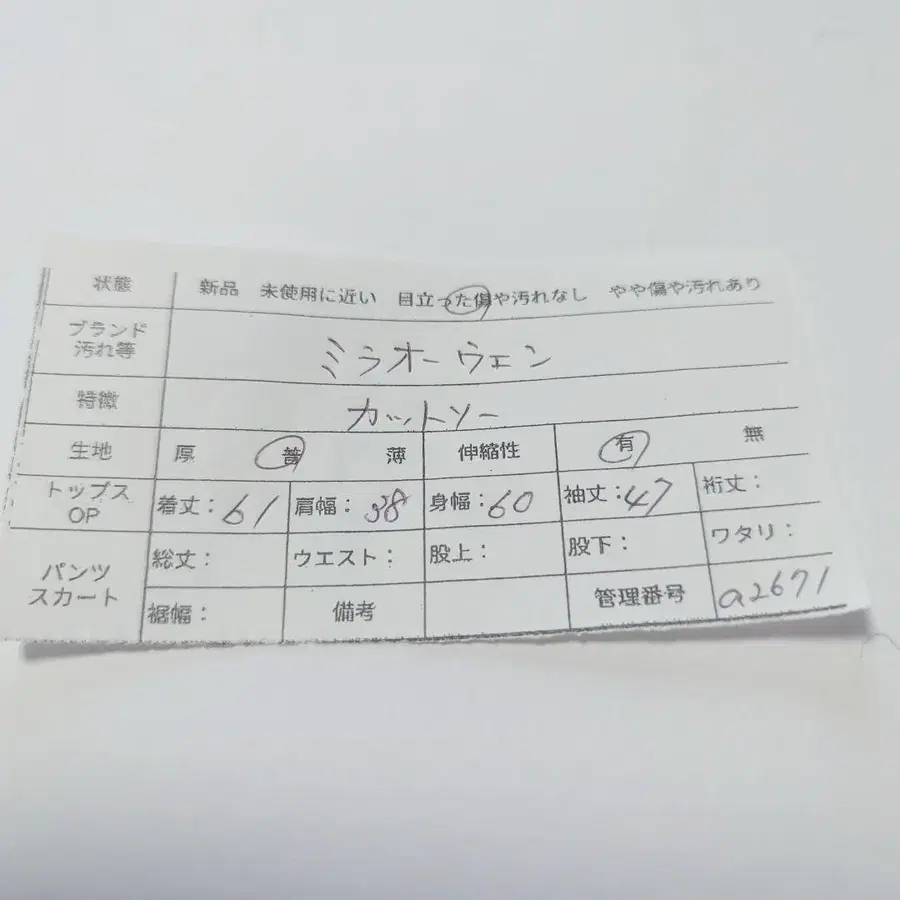 状態 新品 未使用に近い 目立った傷や汚れなし やや傷や汚れあり
ブランド
汚れ等 ミラオーウェン
特徴 カットソー
生地 厚 普 薄 伸縮性 有 無
トップス
OP 着丈:61 肩幅:38 身幅:60 袖丈:47 裄丈:
パンツ
スカート 総丈: ウエスト: 股上: 股下: ワタリ:
裾幅: 備考 管理番号 a2671